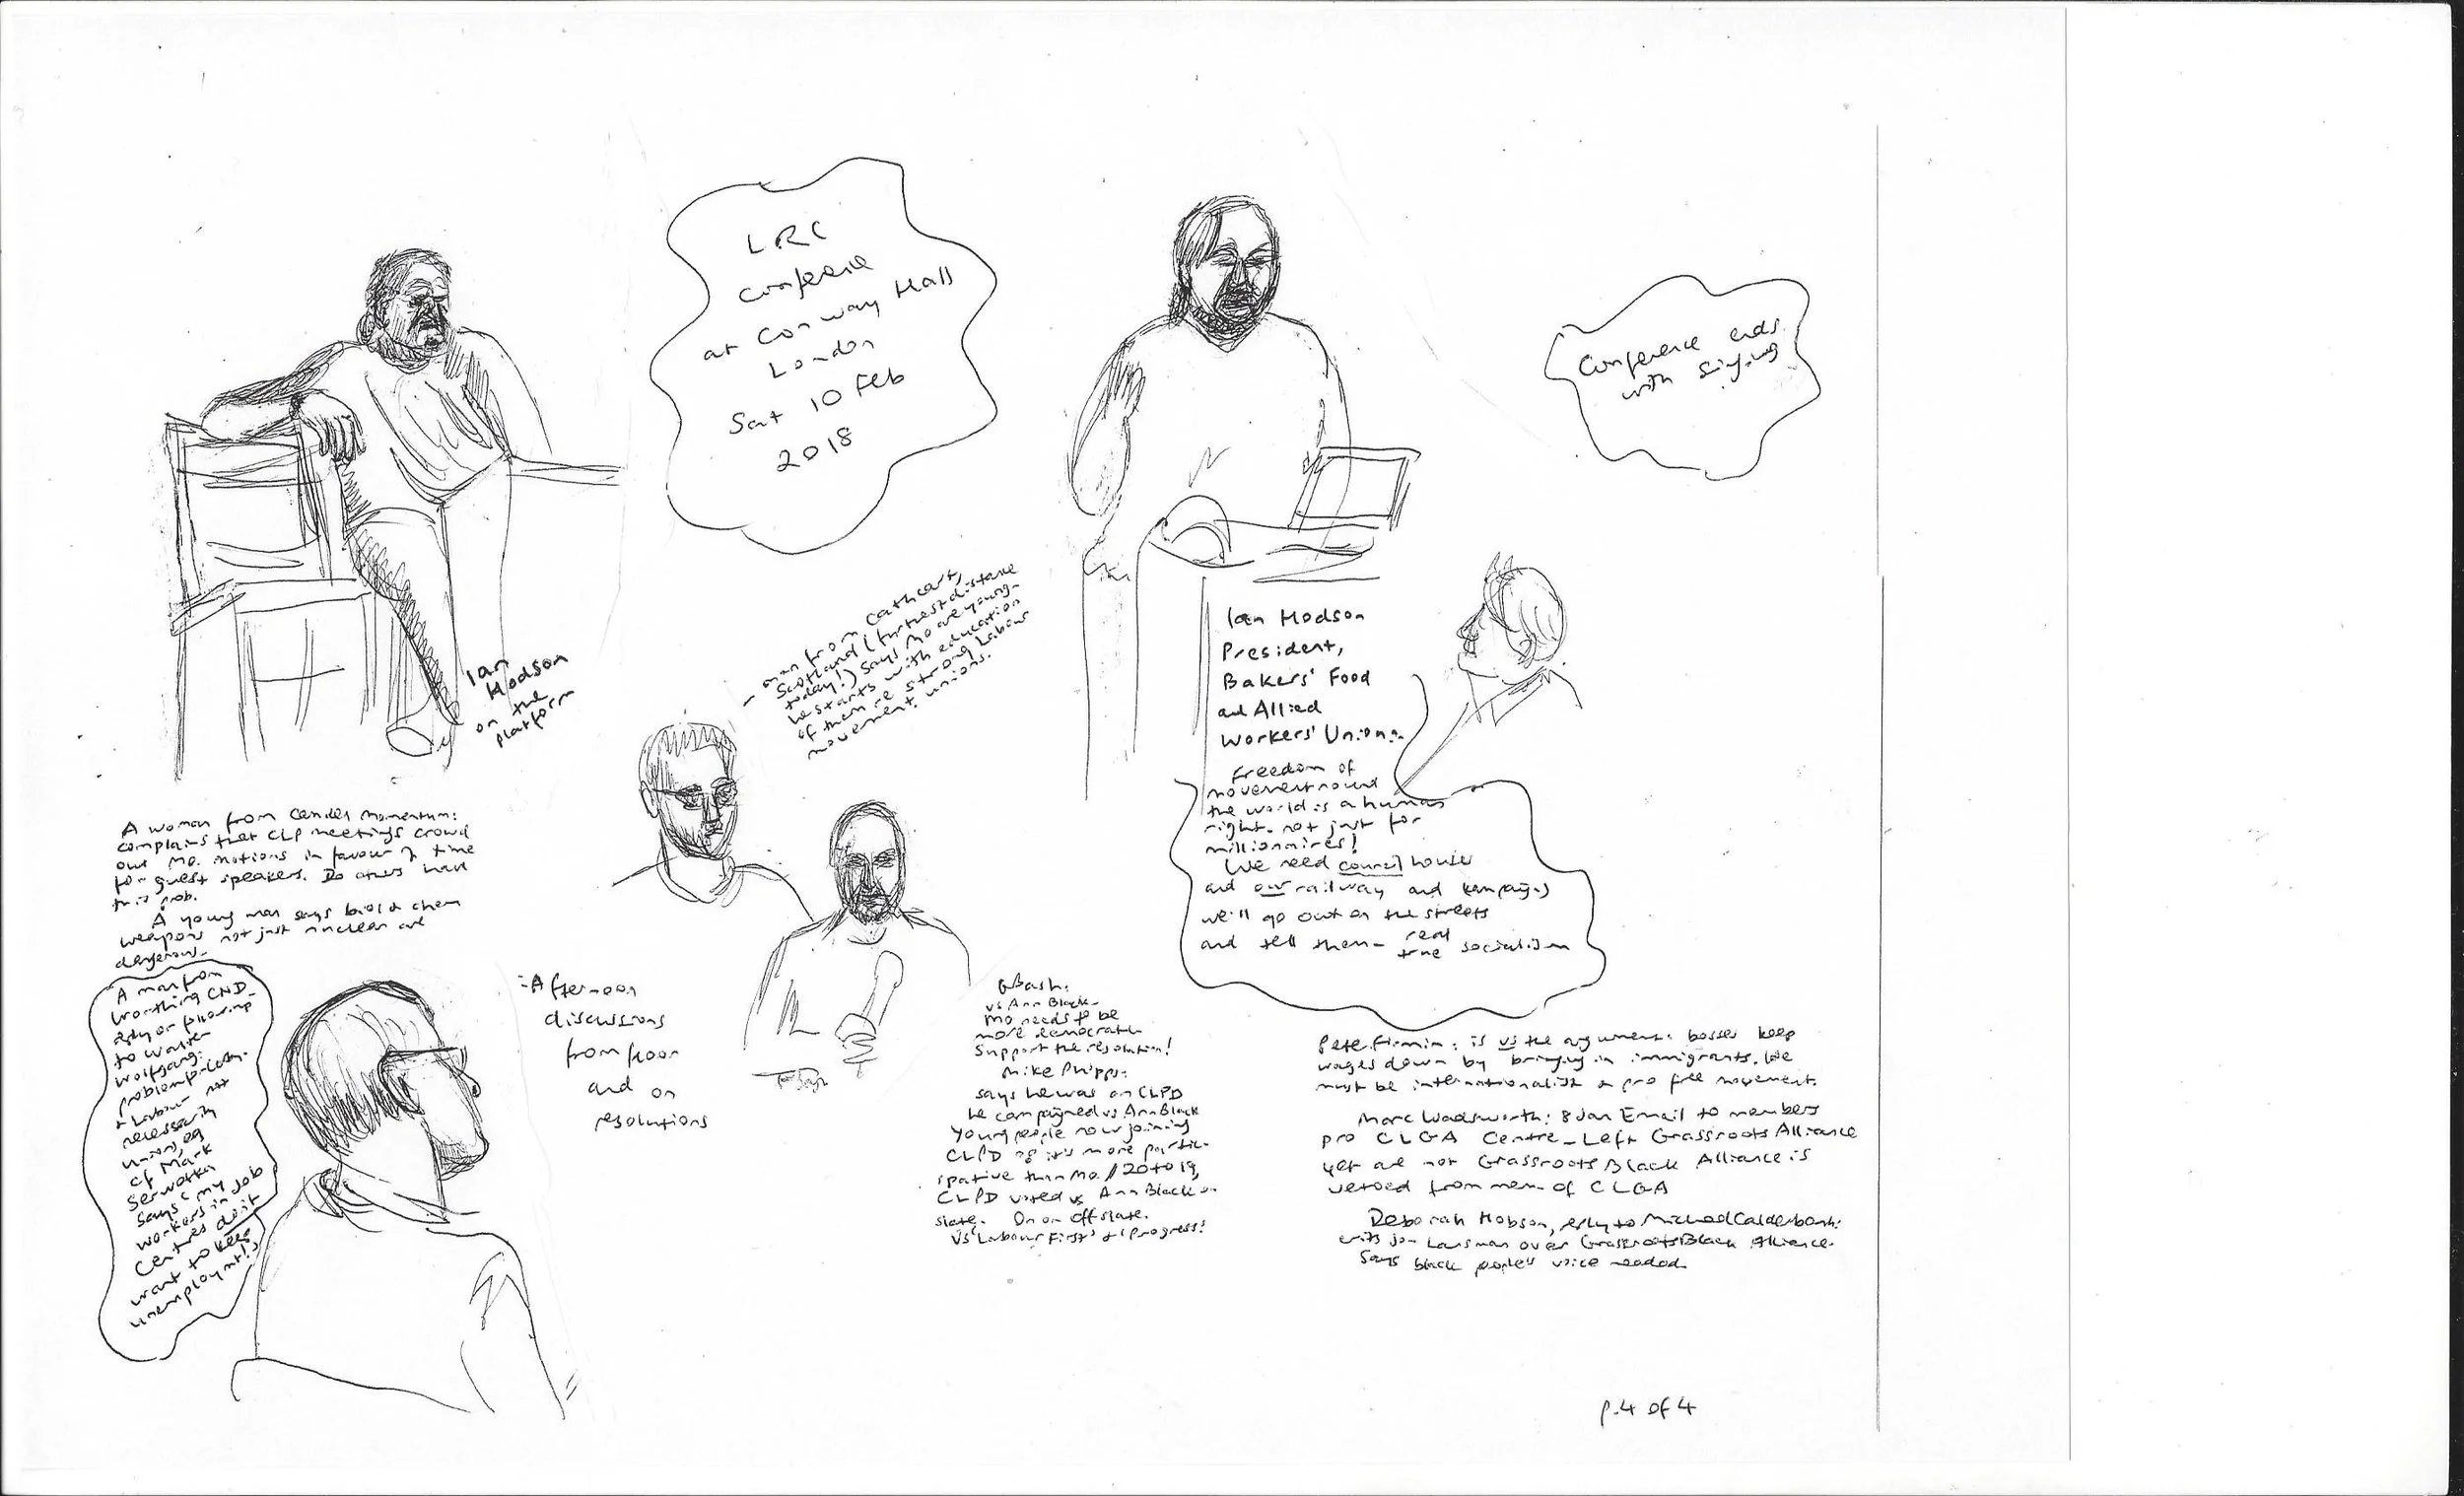 LRC
conference
at Conway Hall
London
Sat 10 Feb
2018
Conference ends
with singing
Ian
Hodson
on the
platform
- man from Cathcart,
Scotland (furthest distance
today!) says Mo are young-
he starts with education
of them re strong Labour
movement unions.
Ian Hodson
President,
Bakers' Food
and Allied
Workers' Union:
Freedom of
movement round
the world is a human
right. not just for
millionaires!
We need council houses
and our railway and
we'll go out on the streets
and tell them - real
true socialism
A woman from Camden Momentum:
complains that CLP meetings crowd
out Mo. motions in favour of time
for guest speakers. Do others have
this prob.
A young man says biol & chem
weapons not just nuclear are
dangerous.
A man from
Worthing CND_
reply or following
to Walter
Wolfgang:
problem
& Labour not
necessarily
union, eg
cf Mark
Serwotka
says 'my
workers in job
centres don't
want to keep
unemploymt!'
- Afternoon
discussions
from floor
and on
resolutions
G Bash:
vs Ann Black -
Mo needs to be
more democratic
Support the resolution!
Mike Phipps:
says he was on CLPD
he campaigned vs Ann Black
Young people now joining
CLPD as it's more partic-
ipative than Mo. / 20 to 19,
CLPD voted vs Ann Black on
slate. On or off slate.
vs 'Labour First' & 'Progress'!
Pete Firmin: is vs the argument: bosses keep
wages down by bringing in immigrants. We
must be internationalist & pro free movement.
Marc Wadsworth: 8 Jan Email to members
pro CLGA Centre_Left Grassroots Alliance
yet are not Grassroots Black Alliance is
vetoed from mem. of CLGA
Deborah Hobson, reply to Michael Calderbank:
crits Jon Lansman over Grassroots Black Alliance.
Says black people's voice needed
p.4 of 4